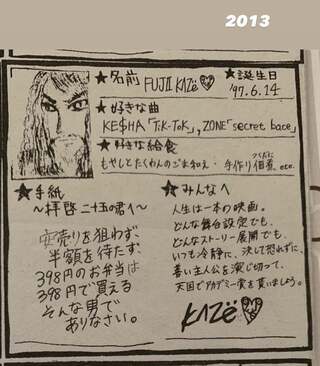 2013
★名前 FUJII KAZë
★誕生日
'97.6.14
★好きな曲
KE$HA「TiK-ToK」, ZONE「secret base」
★好きな給食
もやしとたくわんのごま和え・手作り佃煮 etc.
つくだに
★手紙
〜拝啓 二十五の君へ〜
安売りを狙わず
半額を待たず、
398円のお弁当は
398円で買える
そんな男で
ありなさい。
★みんなへ
人生は一本の映画。
どんな舞台設定でも、
どんなストーリー展開でも、
いつも冷静に、決して恐れずに、
喜い主人公を演じ切って、
天国でアカデミー賞を貰いましょう。
KAZë